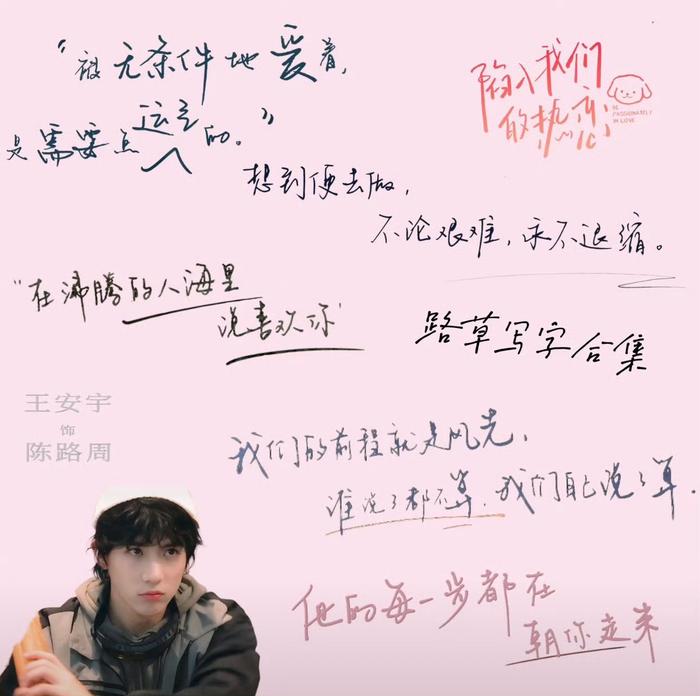 “被无条件地爱着，
是需要点运气的。”
陷入我们
的热恋
BE
PASSIONATELY
IN LOVE
想到便去做，
不论艰难，永不退缩。
“在沸腾的人海里
说喜欢你”
路草写字合集
王安宇
饰
陈路周
我们的前程就是风光，
谁说了都不算，我们自己说了算。
他的每一步都在
朝你走来